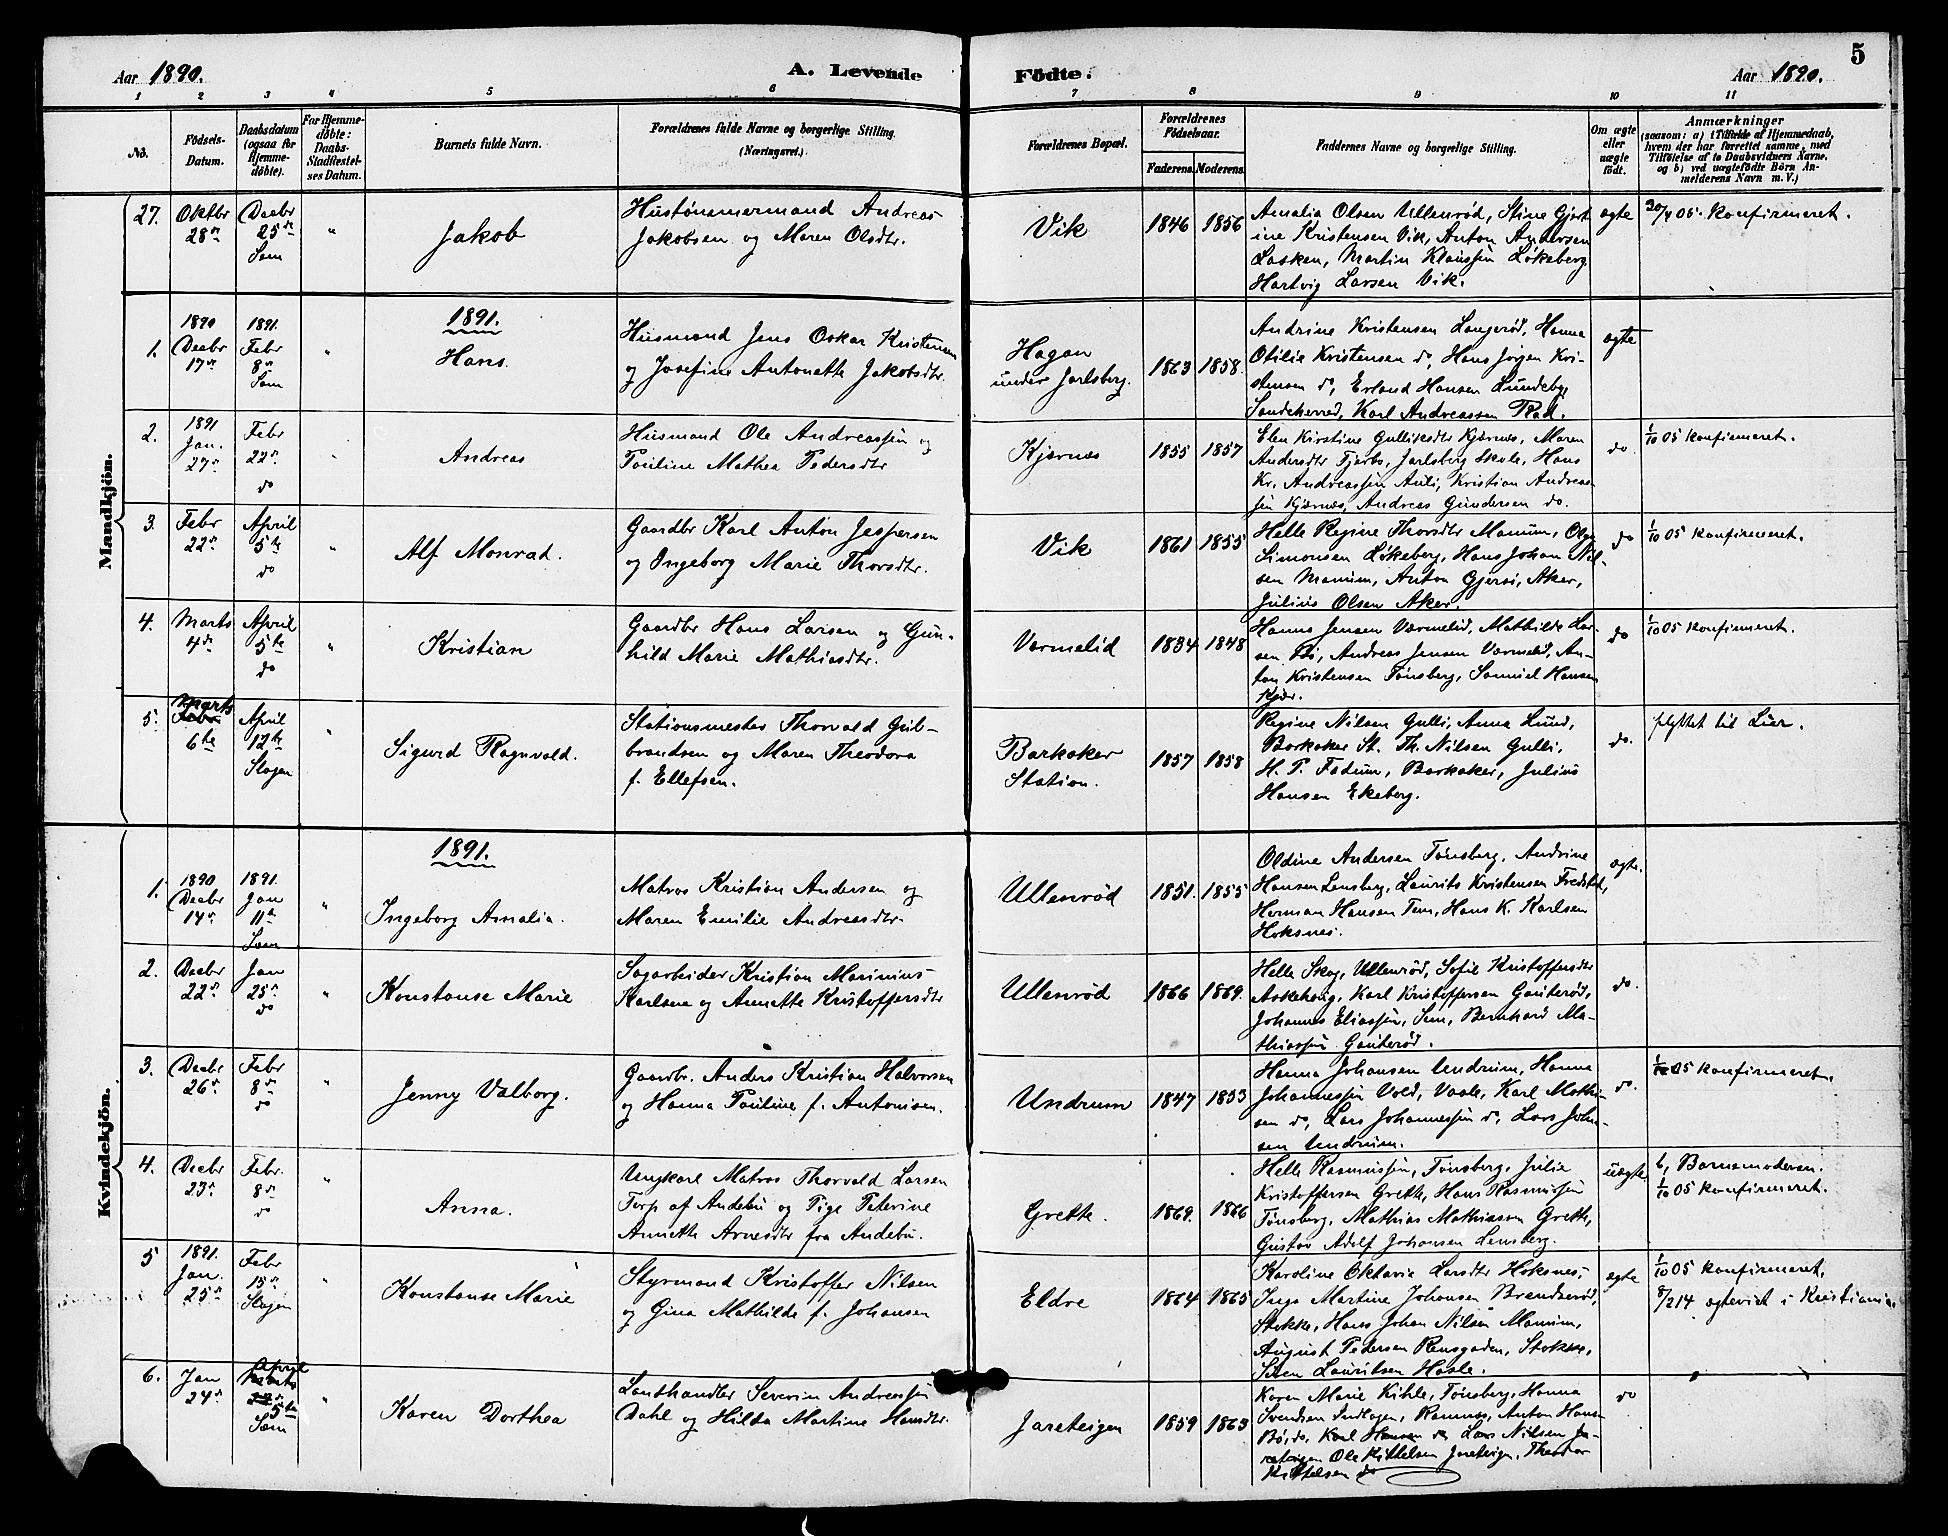 5
Aar 1890.
A. Levende Födte.
Aar 1890.
1 2 3 4 5 6 7 8 9 10 11
No.
Födsels-
Datum.
Daabsdatum
(ogsaa for
Hjemme-
döbte).
For Hjemme-
döbte:
Daabs-
Stadfæstel-
ses Datum.
Barnets fulde Navn.
Forældrenes fulde Navne og borgerlige Stilling.
(Næringsvei.)
Forældrenes Bopæl.
Forældrenes
Födselsaar.
Faderens. Moderens.
Faddernes Navne og borgerlige Stilling.
Om ægte
eller
uægte
födt.
Anmærkninger
(saasom: a) i Tilfælde af Hjemmedaab,
hvem der har forrettet samme, med
Tilföielse af to Daabsvidners Navne,
og b) ved uægtefödte Börn An-
melderens Navn m. V.)
Mandkjön.
27.
Oktbr
28de
Decbr
25de
Sem
"
Jakob
Hustømmermand Andreas
Jakobsen og Maren Olsdtr.
Vik
1846 1856
Amalia Olsen Ullenrød, Stine Gjert
ine Kristensen Vik, Anton Andersen
Lasken, Martin Klaussen Løkeberg
Hartvig Larsen Vik.
ægte
30/4 05. konfirmeret.
1891.
1.
1890
Decbr
17de
1891.
Febr
8de
Sem
"
Hans.
Husmand Jens Oskar Kristensen
og Josefine Antonette Jakobsdtr.
Hagan
under Jarlsberg.
1863 1858.
Andrine Kristensen Langerød, Hanna
Otilie Kristensen do, Hans Jørgen Kri-
stensen do, Erland Hansen Lundeby
Sandeherred, Karl Andreassen Rød.
ægte
2.
1891
Jan.
27de
Febr
22de
do
Andreas
Husmand Ole Andreassen og
Pauline Mathea Pedersdtr
Kjærnæs
1855 1857
Elen Kirstine Gulliksdtr Kjærnes, Maren
Andersdtr Fjærbo, Jarlsberg Skole, Hans
Kr. Andreassen Auli, Kristian Andreas-
sen Kjærnes, Andreas Gundersen do.
do
1/10 05 konfirmeret.
3.
Febr
22de
April
5te
do
"
Alf Monrad.
Gaardbr Karl Anton Jespersen
og Ingeborg Marie Thorsdtr.
Vik
1861 1855
Helle Regine Thorsdtr Manum, Olga
Simonsen Løkeberg, Hans Johan Nil-
sen Manum, Anton Gjersi, Aker,
Julius Olsen Aker.
do
1/10 05 konfirmeret.
4.
Marts
4de
April
5te
do
"
Kristian
Gaardbr Hans Larsen og Gun-
hild Marie Mathiasdtr.
Vermelid
1834 1848
Hanna Jensen Værmelid, Mathilde Lar-
sen Bø, Andreas Jensen Værmelid, An-
ton Kristensen Tønsberg, Samuel Hansen
Kjær.
do
1/10 05 konfirmeret.
5.
Marts
Febr
6te
April
12te
Slagen
"
Sigurd Ragnvald.
Stationsmester Thorvald Gul-
brandsen og Maren Theodora
f. Ellefsen.
Barkaker
Station.
1857 1858
Regine Nilsen Gulli, Anna Lund,
Barkaker St. Th. Nilsen Gulli,
H. P. Fadum, Barkaker, Julius
Hansen Ekeberg.
do.
flyttet til Lier.
Kvindekjön.
1891.
1.
1890
Decbr
14de
1891.
Jan
11te
Sem
"
Ingeborg Amalia.
Matros Kristian Andersen og
Maren Emilie Andreasdtr.
Ullenrød
1851. 1855
Oldine Andersen Tønsberg, Andrine
Hansen Lensberg, Laurits Kristensen Fredstad,
Herman Hansen Tem, Hans K. Karlsen
Hoksnes.
ægte.
2.
Decbr
22de
Jan
25de
do
"
Konstanse Marie
Sagarbeider Kristian Marinius
Karlsen og Annette Kristoffersdtr
Ullenrød
1866 1869.
Helle Skog, Ullenrød, Sofie Kristoffersdtr
Askehaug, Karl Kristoffersen Gauterød,
Johannes Eliassen, Sem, Bernhard Ma-
thiassen Gauterød.
do.
3.
Decbr
26de
Febr
8de
do
"
Jenny Valborg.
Gaardbr. Anders Kristian Halvorsen
og Hanna Pauline f. Antonisen.
Undrum
1847 1853
Hanna Johansen Undrum, Hanna
Johannessen Vold, Vaale, Karl Mathi-
sen do, Lars Johannessen do, Lars Joh-
sen Undrum.
do.
1/10 05 konfirmeret.
4.
Decbr
23de
Febr.
8de
do
"
Anna.
Ungkarl Matros Thorvald Larsen
Torp af Andebu og Pige Peterine
Annette Arnesdtr fra Andebu.
Grette.
1869. 1866
Helle Rasmussen, Tønsberg, Julie
Kristoffersen Grette, Hans Rasmussen
Tønsberg, Mathias Mathiassen Grette,
Gustav Adolf Johansen Lensberg.
uægte
b, Barnemoderen.
1/10 05 konfirmeret.
5
1891.
Jan.
25de
Febr
15de
Slagen
"
Konstanse Marie
Styrmand Kristoffer Nilsen
og Gina Mathilde f. Johansen
Eldre
1864 1865
Karoline Oktavia Larsdtr Hoksnes,
Inga Martine Johansen Brendserød,
Stokke, Hans Johan Nilsen Manum,
August Pedersen Rensgaden, Stokke,
Sten Lauritsen Hasle.
ægte
1/10 05 konfirmeret.
8/2 14 ægteviet i Kristiania.
6.
Jan
24de
April
Marts
22de
5te
Sem
"
Karen Dorthea
Landhandler Severin Andreassen
Dahl og Hilda Martine Hansdtr.
Jareteigen
1859 1863
Karen Marie Kihle, Tønsberg, Hanna
Svendsen Indlagen, Ramnes, Anton Hansen
Bø, do, Karl Hansen do, Lars Nilsen Ja-
reteigen Ole Kittelsen Jareteigen, Theodor
Kittelsen do
do